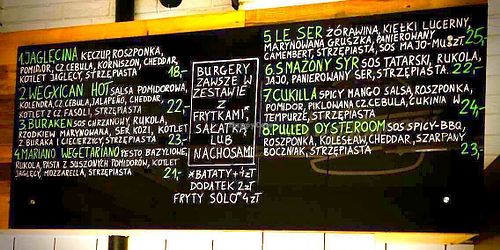 1.JAGLĘCINA KECZUP, ROSZPONKA,
POMIDOR, CZ.CEBULA, KORNISZON, CHEDDAR,
KOTLET JAGLĘCY, STRZĘPIASTA 18,-
2.WEGXICAN HOT SALSA POMIDOROWA,
KOLENDRA, CZ.CEBULA, JALAPEÑO, CHEDDAR,
KOTLET Z CZ. FASOLI, STRZĘPIASTA 22,-
3.BURAKEN SOS CHRZANOWY, RUKOLA,
RZODKIEW MARYNOWANA, SER KOZI, KOTLET
Z BURAKA I CIECIERZYCY, STRZĘPIASTA 23,-
4.MARIANO WEGETARIANO PESTO BAZYLIOWE,
RUKOLA, PASTA Z SUSZONYCH POMIDORÓW, KOTLET
JAGLĘCY, MOZZARELLA, STRZĘPIASTA 21,-
BURGERY
ZAWSZE W
ZESTAWIE
Z
FRYTKAMI*,
SAŁATKĄ
LUB
NACHOSAMI
*BATATY +4zł
DODATEK 2zł
FRYTY SOLO* 4zł
5.LE SER ŻÓRAWINA, KIEŁKI LUCERNY,
MARYNOWANA GRUSZKA, PANIEROWANY
CAMEMBERT, STRZĘPIASTA, SOS MAJO-MUSZT. 25,-
6.SMAŻONY SYR SOS TATARSKI, RUKOLA,
JAJO, PANIEROWANY SER, STRZĘPIASTA. 22,-
7.CUKILLA SPICY MANGO SALSA, ROSZPONKA,
POMIDOR, PIKLOWANA CZ.CEBULA, CUKINIA W
TEMPURZE, STRZĘPIASTA 24,-
8.PULLED OYSTEROOM SOS SPICY-BBQ,
ROSZPONKA, KOLESŁAW, CHEDDAR, SZARPANY
BOCZNIAK, STRZĘPIASTA 23,-